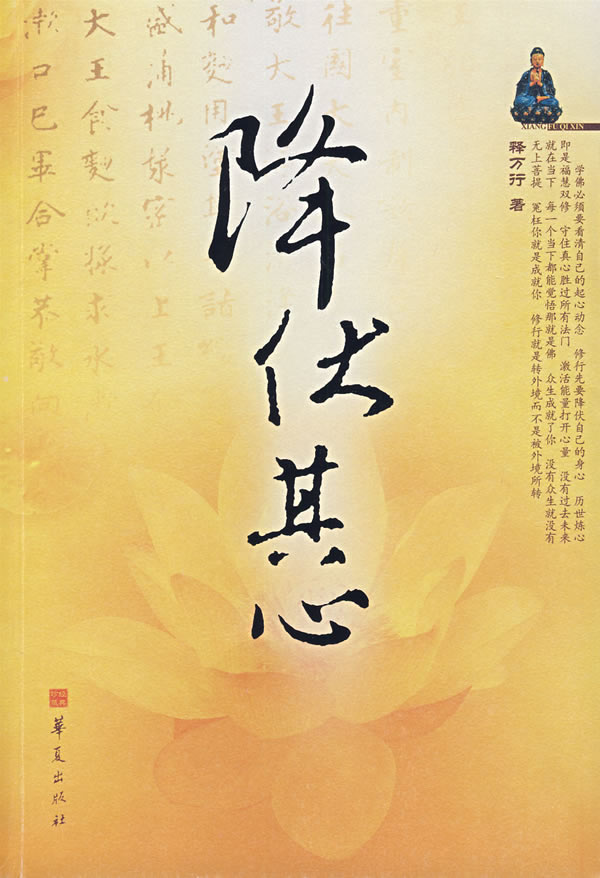 XIANG FU QI XIN
释万行 著
学佛必须要看清自己的起心动念 修行先要降伏自己的身心 历世炼心
即是福慧双修 守住真心胜过所有法门 激活能量打开心量 没有过去未来
就在当下 每一个当下都能觉悟那就是佛 众生成就了你 没有众生就没有
无上菩提 冤枉你就是成就你 修行就是转外境而不是被外境所转
降伏其心
敬大王
和麵用
大王食麵
漱口已畢合掌恭敬向
華夏出版社